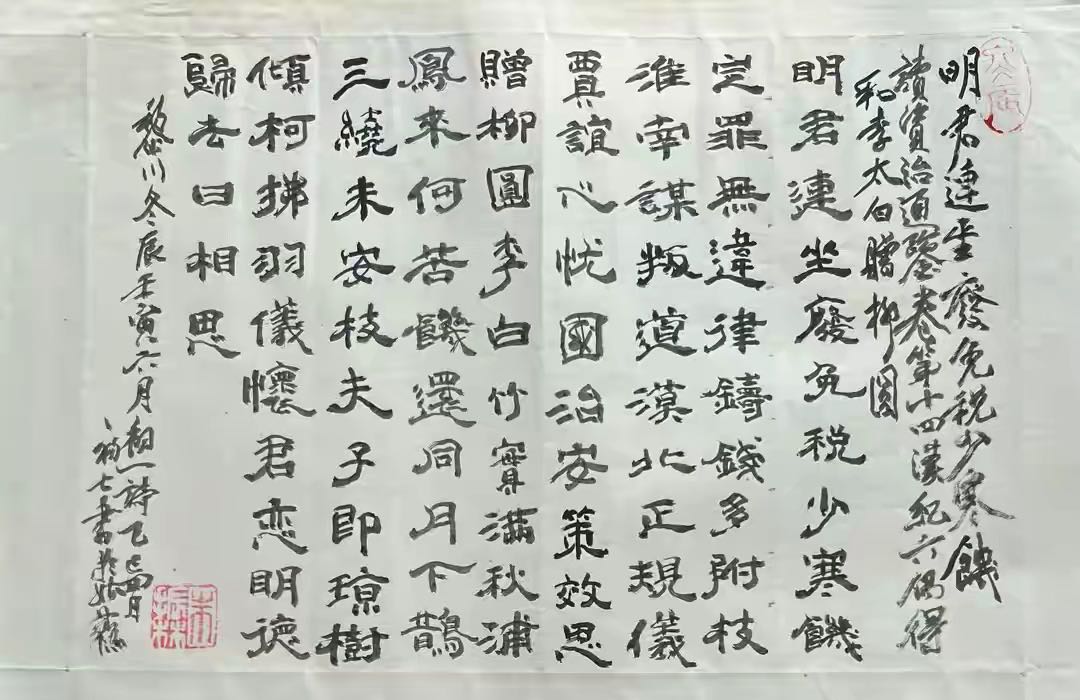 明君連坐廢免税少寒饑
讀資治通鑒卷第十四漢紀六偶得
和李太白贈柳圓
明君連坐廢免税少寒饑
定罪無違律鑄錢多附枝
淮南謀叛道漠北正規儀
賈誼心忧國治安策效思
贈柳圓李白竹實滿秋浦
鳳來何苦饑還同月下鵲
三繞未安枝夫子即瓊樹
傾柯拂羽儀懷君恋明德
歸去日相思
川冬辰壬寅六月初一詩乙巳四月
初七書於